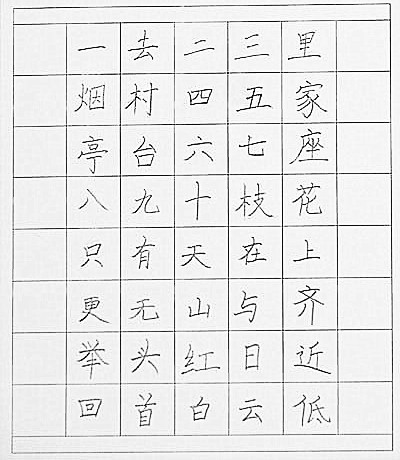 一去二三里
烟村四五家
亭台六七座
八九十枝花
只有天在上
更无山与齐
举头红日近
回首白云低